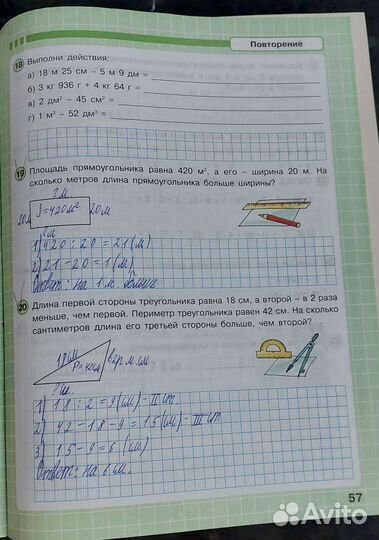 Повторение
18 Выполни действия:
а) 18 м 25 см – 5 м 9 дм =
б) 3 кг 936 г + 4 кг 64 г =
в) 2 дм² – 45 см² =
г) 1 м³ – 52 дм³ =
19 Площадь прямоугольника равна 420 м², а его – ширина 20 м. На
сколько метров длина прямоугольника больше ширины?
? м
20м S=420м² 20м
?м
1) 420 : 20 = 21 (м)
2) 21 - 20 = 1 (м)
Ответ: на 1 м больше
20 Длина первой стороны треугольника равна 18 см, а второй – в 2 раза
меньше, чем первой. Периметр треугольника равен 42 см. На сколько
сантиметров длина его третьей стороны больше, чем второй?
18см P=42см в 2 р. м.
? см.
1) 18 : 2 = 9 (см) - II ст
2) 42 - 18 - 9 = 15 (см) - III ст
3) 15 - 9 = 6 (см)
Ответ: на 6 см.
57
Avito